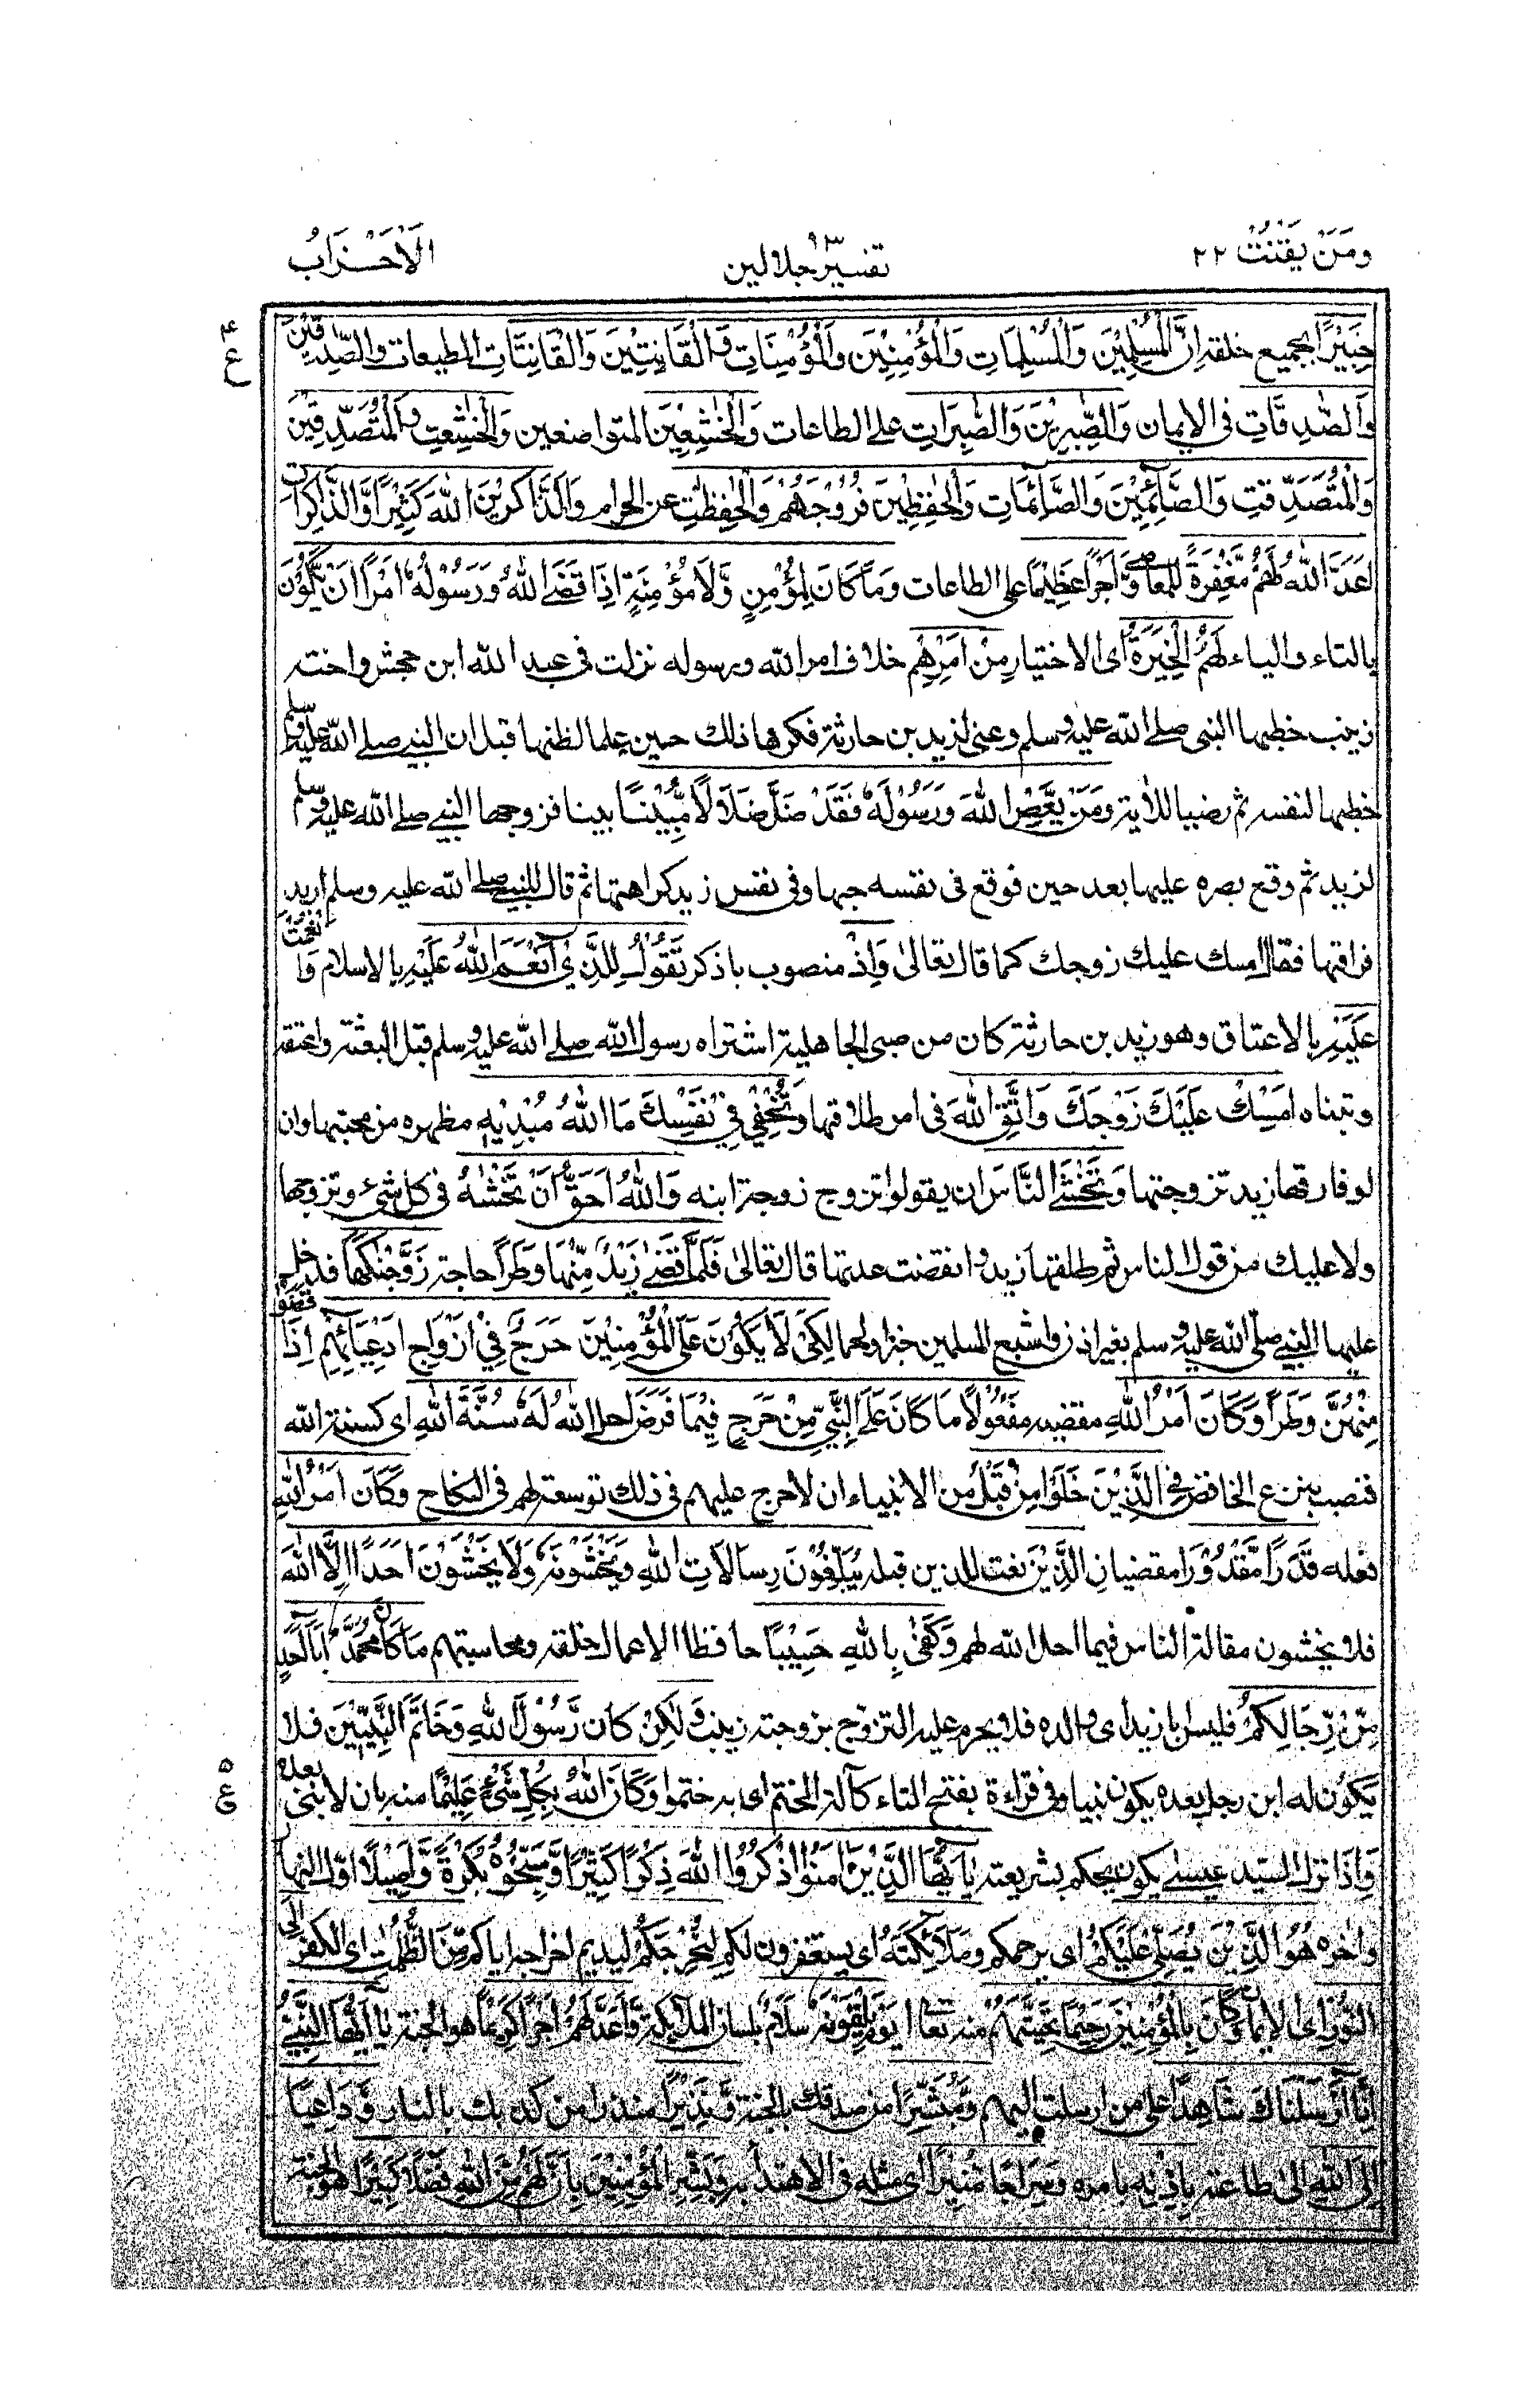 ومَنْ يَقْنُتْ ٢٢
٩٣
تفسير جلالين
الْاَحْزَابُ
خَبِيْرًا بجميع خلقه اِنَّ الْمُسْلِمِيْنَ وَالْمُسْلِمَاتِ وَالْمُؤْمِنِيْنَ وَالْمُؤْمِنَاتِ وَالْقَانِتِيْنَ وَالْقَانِتَاتِ المطيعات وَالصّٰدِقِيْنَ
وَالصّٰدِقَاتِ فى الايمان وَالصّٰبِرِيْنَ وَالصّٰبِرَاتِ على الطاعات وَالْخٰشِعِيْنَ المتواضعين وَالْخٰشِعٰتِ وَالْمُتَصَدِّقِيْنَ
وَالْمُتَصَدِّقٰتِ وَالصَّائِمِيْنَ وَالصَّائِمَاتِ وَالْحٰفِظِيْنَ فُرُوْجَهُمْ وَالْحٰفِظٰتِ عن الحرام وَالذَّاكِرِيْنَ اللّٰهَ كَثِيْرًا وَّالذَّاكِرَاتِ
اَعَدَّ اللّٰهُ لَهُمْ مَّغْفِرَةً للمعاصى وَّاَجْرًا عَظِيْمًا على الطاعات وَمَا كَانَ لِمُؤْمِنٍ وَّلَا مُؤْمِنَةٍ اِذَا قَضَى اللّٰهُ وَرَسُوْلُهٗ اَمْرًا اَنْ يَّكُوْنَ
بالتاء والياء لَهُمُ الْخِيَرَةُ اى الاختيار مِنْ اَمْرِهِمْ خلاف امر الله ورسوله نزلت فى عبد الله ابن جحش واخته
زينب خطبها النبى صلى الله عليه وسلم وعنى لزيد بن حارثة فكرها ذلك حين علما لظنهما قبل ان النبى صلى الله عليه وسلم
خطبها لنفسه ثم رضيا للاية وَمَنْ يَّعْصِ اللّٰهَ وَرَسُوْلَهٗ فَقَدْ ضَلَّ ضَلَالًا مُّبِيْنًا بينا فزوجها النبى صلى الله عليه وسلم
لزيد ثم وقع بصره عليها بعد حين فوقع فى نفسه حبها وفى نفس زيد كراهتها ثم قال للنبى صلى الله عليه وسلم اريد
فراقها فقال امسك عليك زوجك كما قال تعالىٰ وَاِذْ منصوب باذكر تَقُوْلُ لِلَّذِىْ اَنْعَمَ اللّٰهُ عَلَيْهِ بالاسلام وَاَنْعَمْتَ
عَلَيْهِ بالاعتاق وهو زيد بن حارثة كان من سبى الجاهلية اشتراه رسول الله صلى الله عليه وسلم قبل البعثة واعتقه
وتبناه اَمْسِكْ عَلَيْكَ زَوْجَكَ وَاتَّقِ اللّٰهَ فى امر طلاقها وَتُخْفِىْ فِىْ نَفْسِكَ مَا اللّٰهُ مُبْدِيْهِ مظهره من محبتها وان
لو فارقها زيد تزوجتها وَتَخْشَى النَّاسَ ان يقولوا تزوج زوجة ابنه وَاللّٰهُ اَحَقُّ اَنْ تَخْشٰهُ فى كل شىء وتزوجها
ولا عليك من قول الناس ثم طلقها زيد وانقضت عدتها قال تعالىٰ فَلَمَّا قَضٰى زَيْدٌ مِّنْهَا وَطَرًا حاجة زَوَّجْنٰكَهَا فدخل
عليها النبى صلى الله عليه وسلم بغير اذن واشبع المسلمين خبزا ولحما لِكَىْ لَا يَكُوْنَ عَلَى الْمُؤْمِنِيْنَ حَرَجٌ فِىْ اَزْوَاجِ اَدْعِيَائِهِمْ اِذَا قَضَوْا
مِنْهُنَّ وَطَرًا وَكَانَ اَمْرُ اللّٰهِ مقضيه مَفْعُوْلًا مَا كَانَ عَلَى النَّبِىِّ مِنْ حَرَجٍ فِيْمَا فَرَضَ احل اللّٰهُ لَهٗ سُنَّةَ اللّٰهِ اى كسنة الله
فنصب بنزع الخافض فِى الَّذِيْنَ خَلَوْا مِنْ قَبْلُ من الانبياء ان لا حرج عليهم فى ذلك توسعة لهم فى النكاح وَكَانَ اَمْرُ اللّٰهِ
فعله قَدَرًا مَّقْدُوْرًا مقضيا نِ الَّذِيْنَ نعت للذين قبله يُبَلِّغُوْنَ رِسَالَاتِ اللّٰهِ وَيَخْشَوْنَهٗ وَلَا يَخْشَوْنَ اَحَدًا اِلَّا اللّٰهَ
فلا يخشون مقالة الناس فيما احل الله لهم وَكَفٰى بِاللّٰهِ حَسِيْبًا حافظا لاعمال خلقه ومحاسبتهم مَا كَانَ مُحَمَّدٌ اَبَا اَحَدٍ
مِّنْ رِّجَالِكُمْ فليس ابا زيد اى والده فلا يحرم عليه التزوج بزوجته زينب وَلٰكِنْ كان رَّسُوْلَ اللّٰهِ وَخَاتَمَ النَّبِيّٖنَ فلا
يَكُوْن له ابن رجل بعده يكون نبيا وفى قراءة بفتح التاء كآلة الختم اى به ختموا وَكَانَ اللّٰهُ بِكُلِّ شَىْءٍ عَلِيْمًا منه بان لا نبى بعده
وَاِذَا نزل السيد عيسى يكون يحكم بشريعته يٰاَيُّهَا الَّذِيْنَ اٰمَنُوا اذْكُرُوا اللّٰهَ ذِكْرًا كَثِيْرًا وَّسَبِّحُوْهُ بُكْرَةً وَّاَصِيْلًا اول النهار
واٰخره هُوَ الَّذِيْ يُصَلِّىْ عَلَيْكُمْ اى يرحمكم وَمَلَائِكَتُهٗ اى يستغفرون لكم لِيُخْرِجَكُمْ ليديم اخراجه اياكم مِّنَ الظُّلُمٰتِ اى الكفر اِلَى
النُّوْرِ اى الايمان وَكَانَ بِالْمُؤْمِنِيْنَ رَحِيْمًا تَحِيَّتُهُمْ منه تعالى يَوْمَ يَلْقَوْنَهٗ سَلَامٌ بلسان الملائكة وَّاَعَدَّ لَهُمْ اَجْرًا كَرِيْمًا هو الجنة يٰاَيُّهَا النَّبِىُّ
اِنَّا اَرْسَلْنَاكَ شَاهِدًا على من ارسلت اليهم وَّمُبَشِّرًا من صدقك بالجنة وَّنَذِيْرًا منذرا من كذبك بالنار وَّدَاعِيًا
اِلَى اللّٰهِ الى طاعته بِاِذْنِهٖ بامره وَسِرَاجًا مُّنِيْرًا اى مثله فى الاهتداء به وَبَشِّرِ الْمُؤْمِنِيْنَ بِاَنَّ لَهُمْ مِّنَ اللّٰهِ فَضْلًا كَبِيْرًا هو الجنة
٤
ع
٥
ع